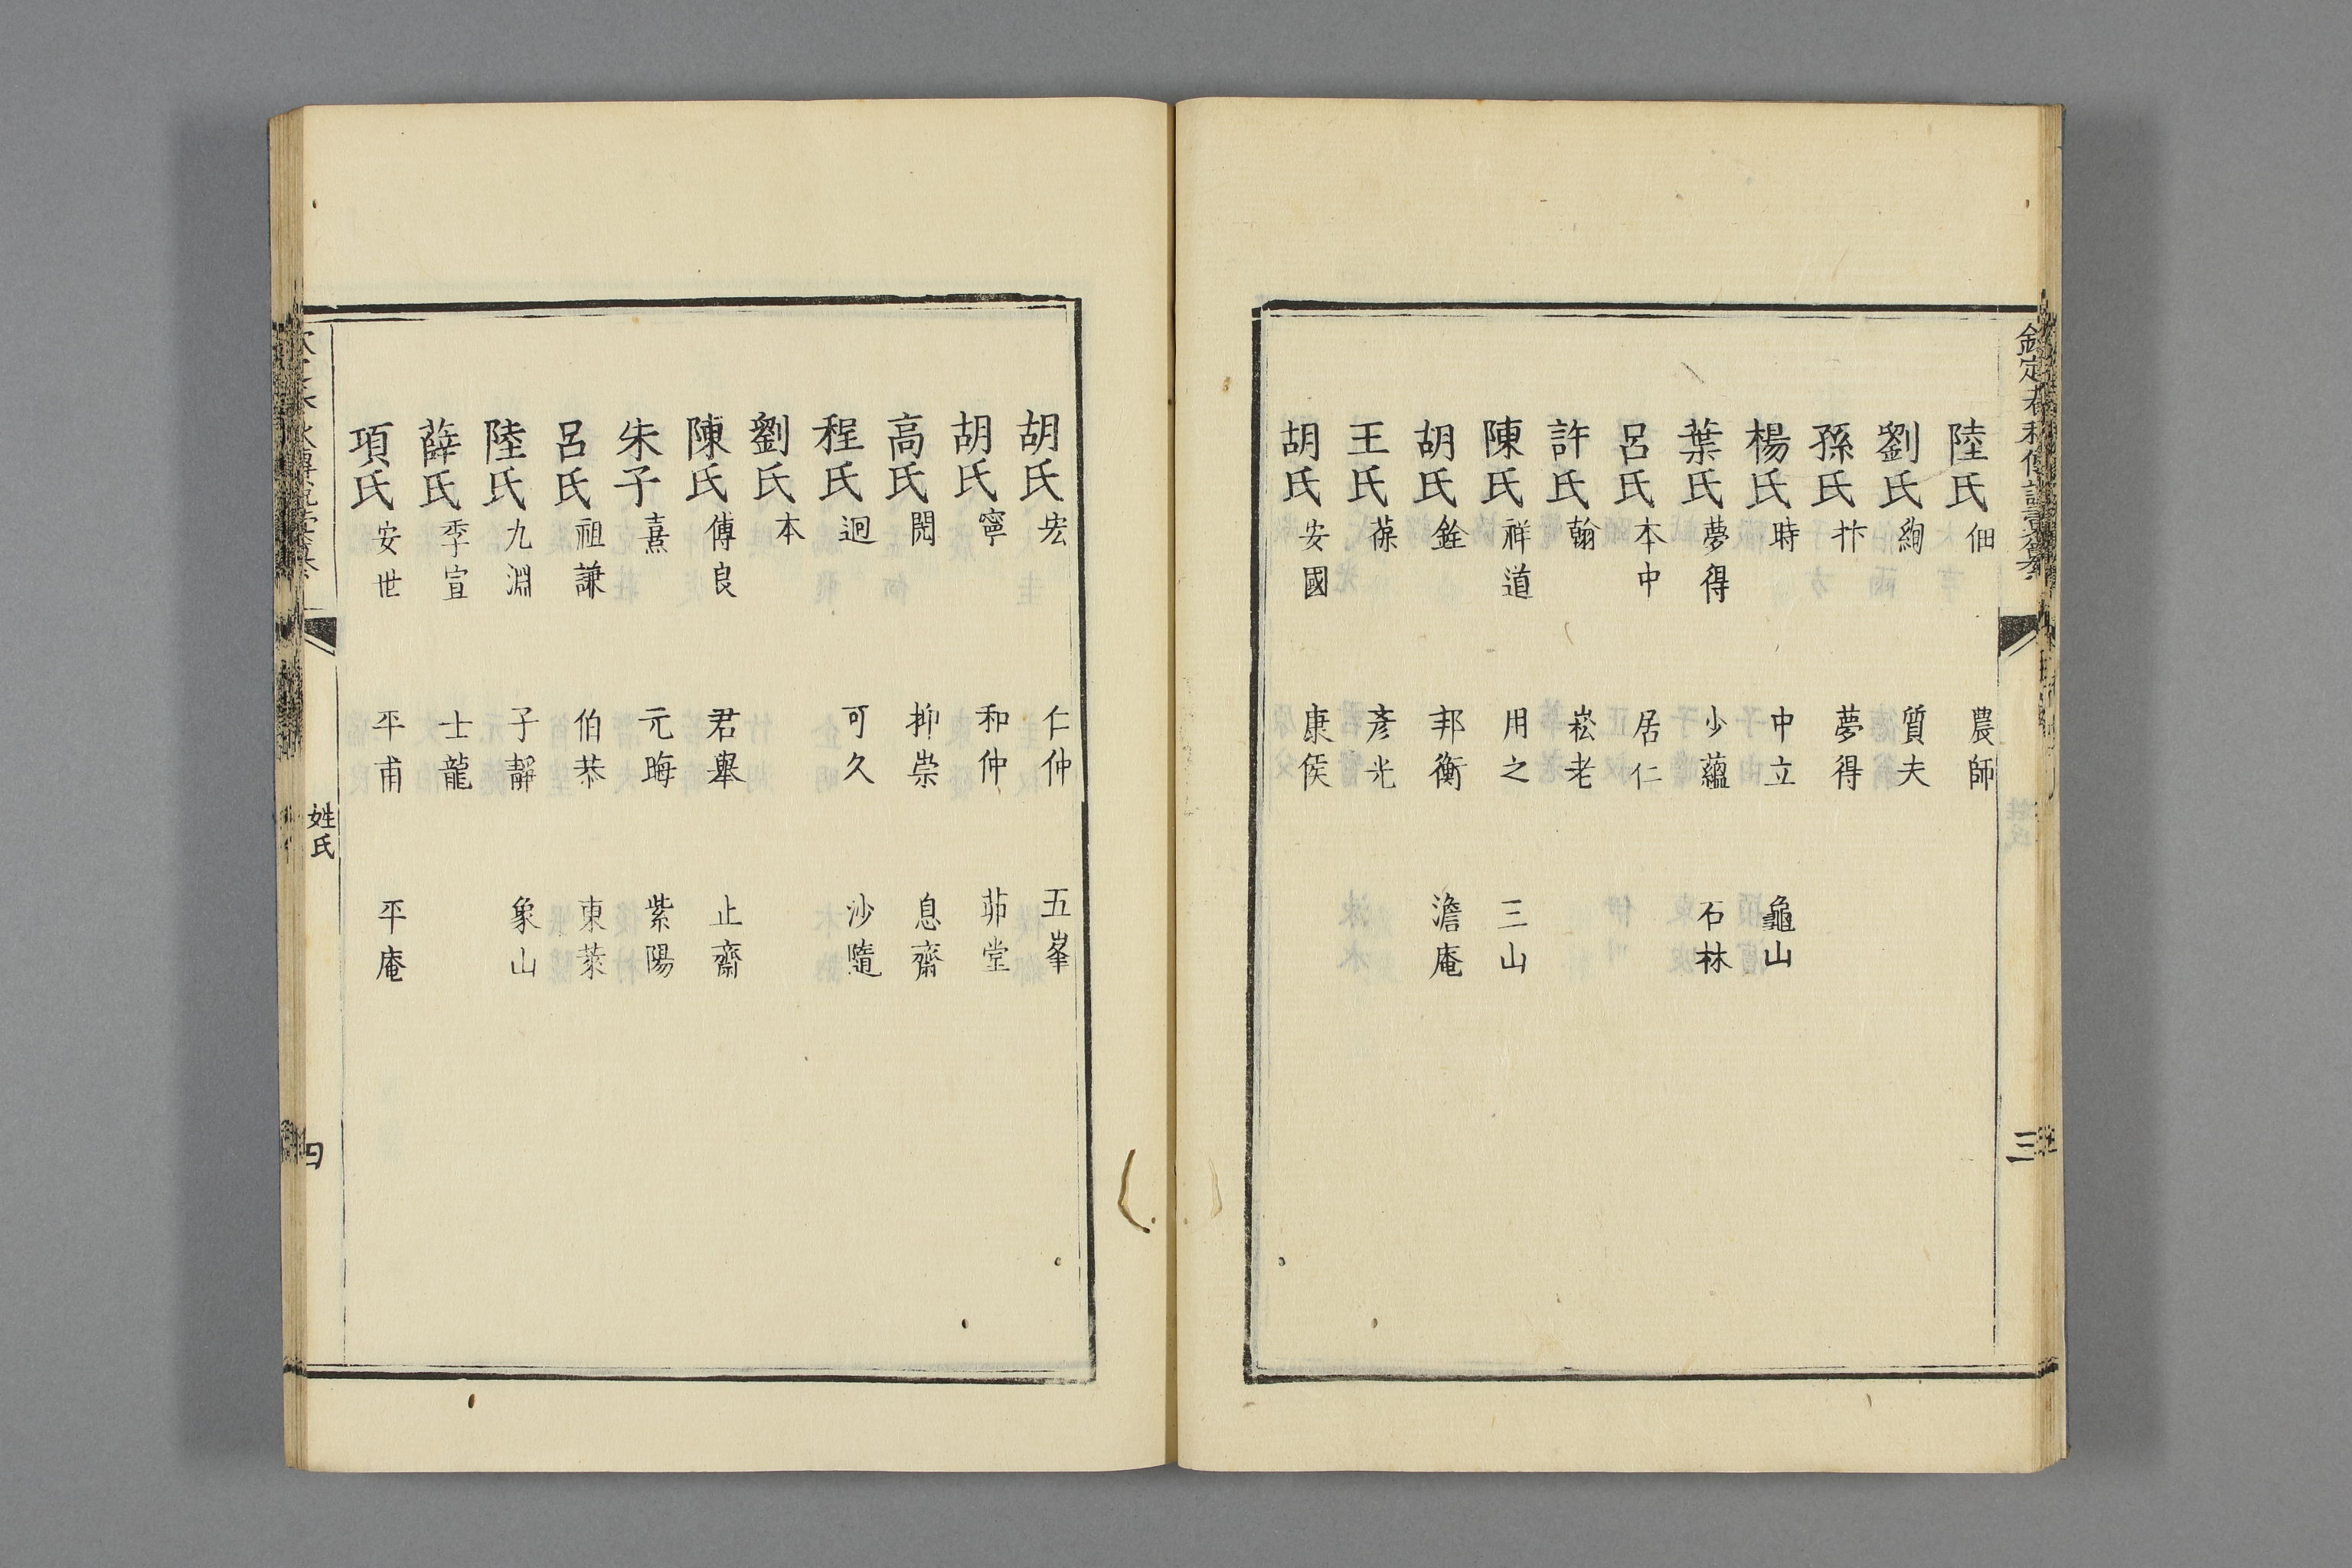 陸氏佃 農師
劉氏絢 質夫
孫氏抃 夢得
楊氏時 中立 龜山
葉氏夢得 少蘊 石林
呂氏本中 居仁
許氏翰 崧老
陳氏祥道 用之 三山
胡氏銓 邦衡 澹庵
王氏葆 彥光
胡氏安國 康侯
三
胡氏宏 仁仲 五峯
胡氏寧 和仲 茆堂
高氏閌 抑崇 息齋
程氏迥 可久 沙隨
劉氏本
陳氏傅良 君舉 止齋
朱子熹 元晦 紫陽
呂氏祖謙 伯恭 東萊
陸氏九淵 子靜 象山
薛氏季宣 士龍
項氏安世 平甫 平庵
姓氏
四